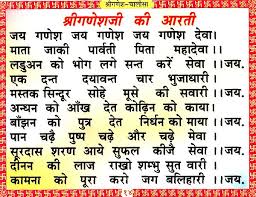 श्रीगणेश-चालीसा
श्रीगणेशजी की आरती
जय गणेश जय गणेश जय गणेश देवा।
माता जाकी पार्वती पिता महादेवा।।
लडुअन को भोग लगे सन्त करें सेवा।।जय.
एक दन्त दयावन्त चार भुजाधारी।
मस्तक सिन्दूर सोहे मूसे की सवारी।।जय.
अन्धन को आँख देत कोढ़िन को काया।
बाँझन को पुत्र देत निर्धन को माया।।जय.
पान चढ़ै पुष्प चढ़ै और चढ़ै मेवा।
सूरदास शरण आये सुफल कीजै सेवा।।जय.
दीनन की लाज राखो शम्भु सुत वारी।
कामना को पूरा करो जग बलिहारी।।जय.